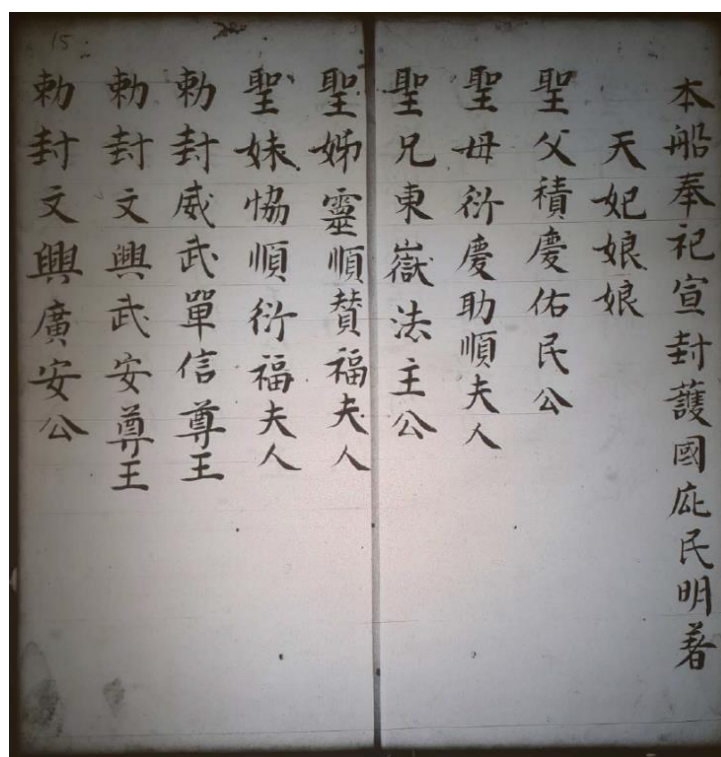 本船奉祀宣封護國庇民明著
天妃娘娘
聖父積慶佑民公
聖母衍慶助順夫人
聖兄東嶽法主公
聖姊靈順贊福夫人
聖妹恊順衍福夫人
勅封威武單信尊王
勅封文興武安尊王
勅封文興廣安公
15